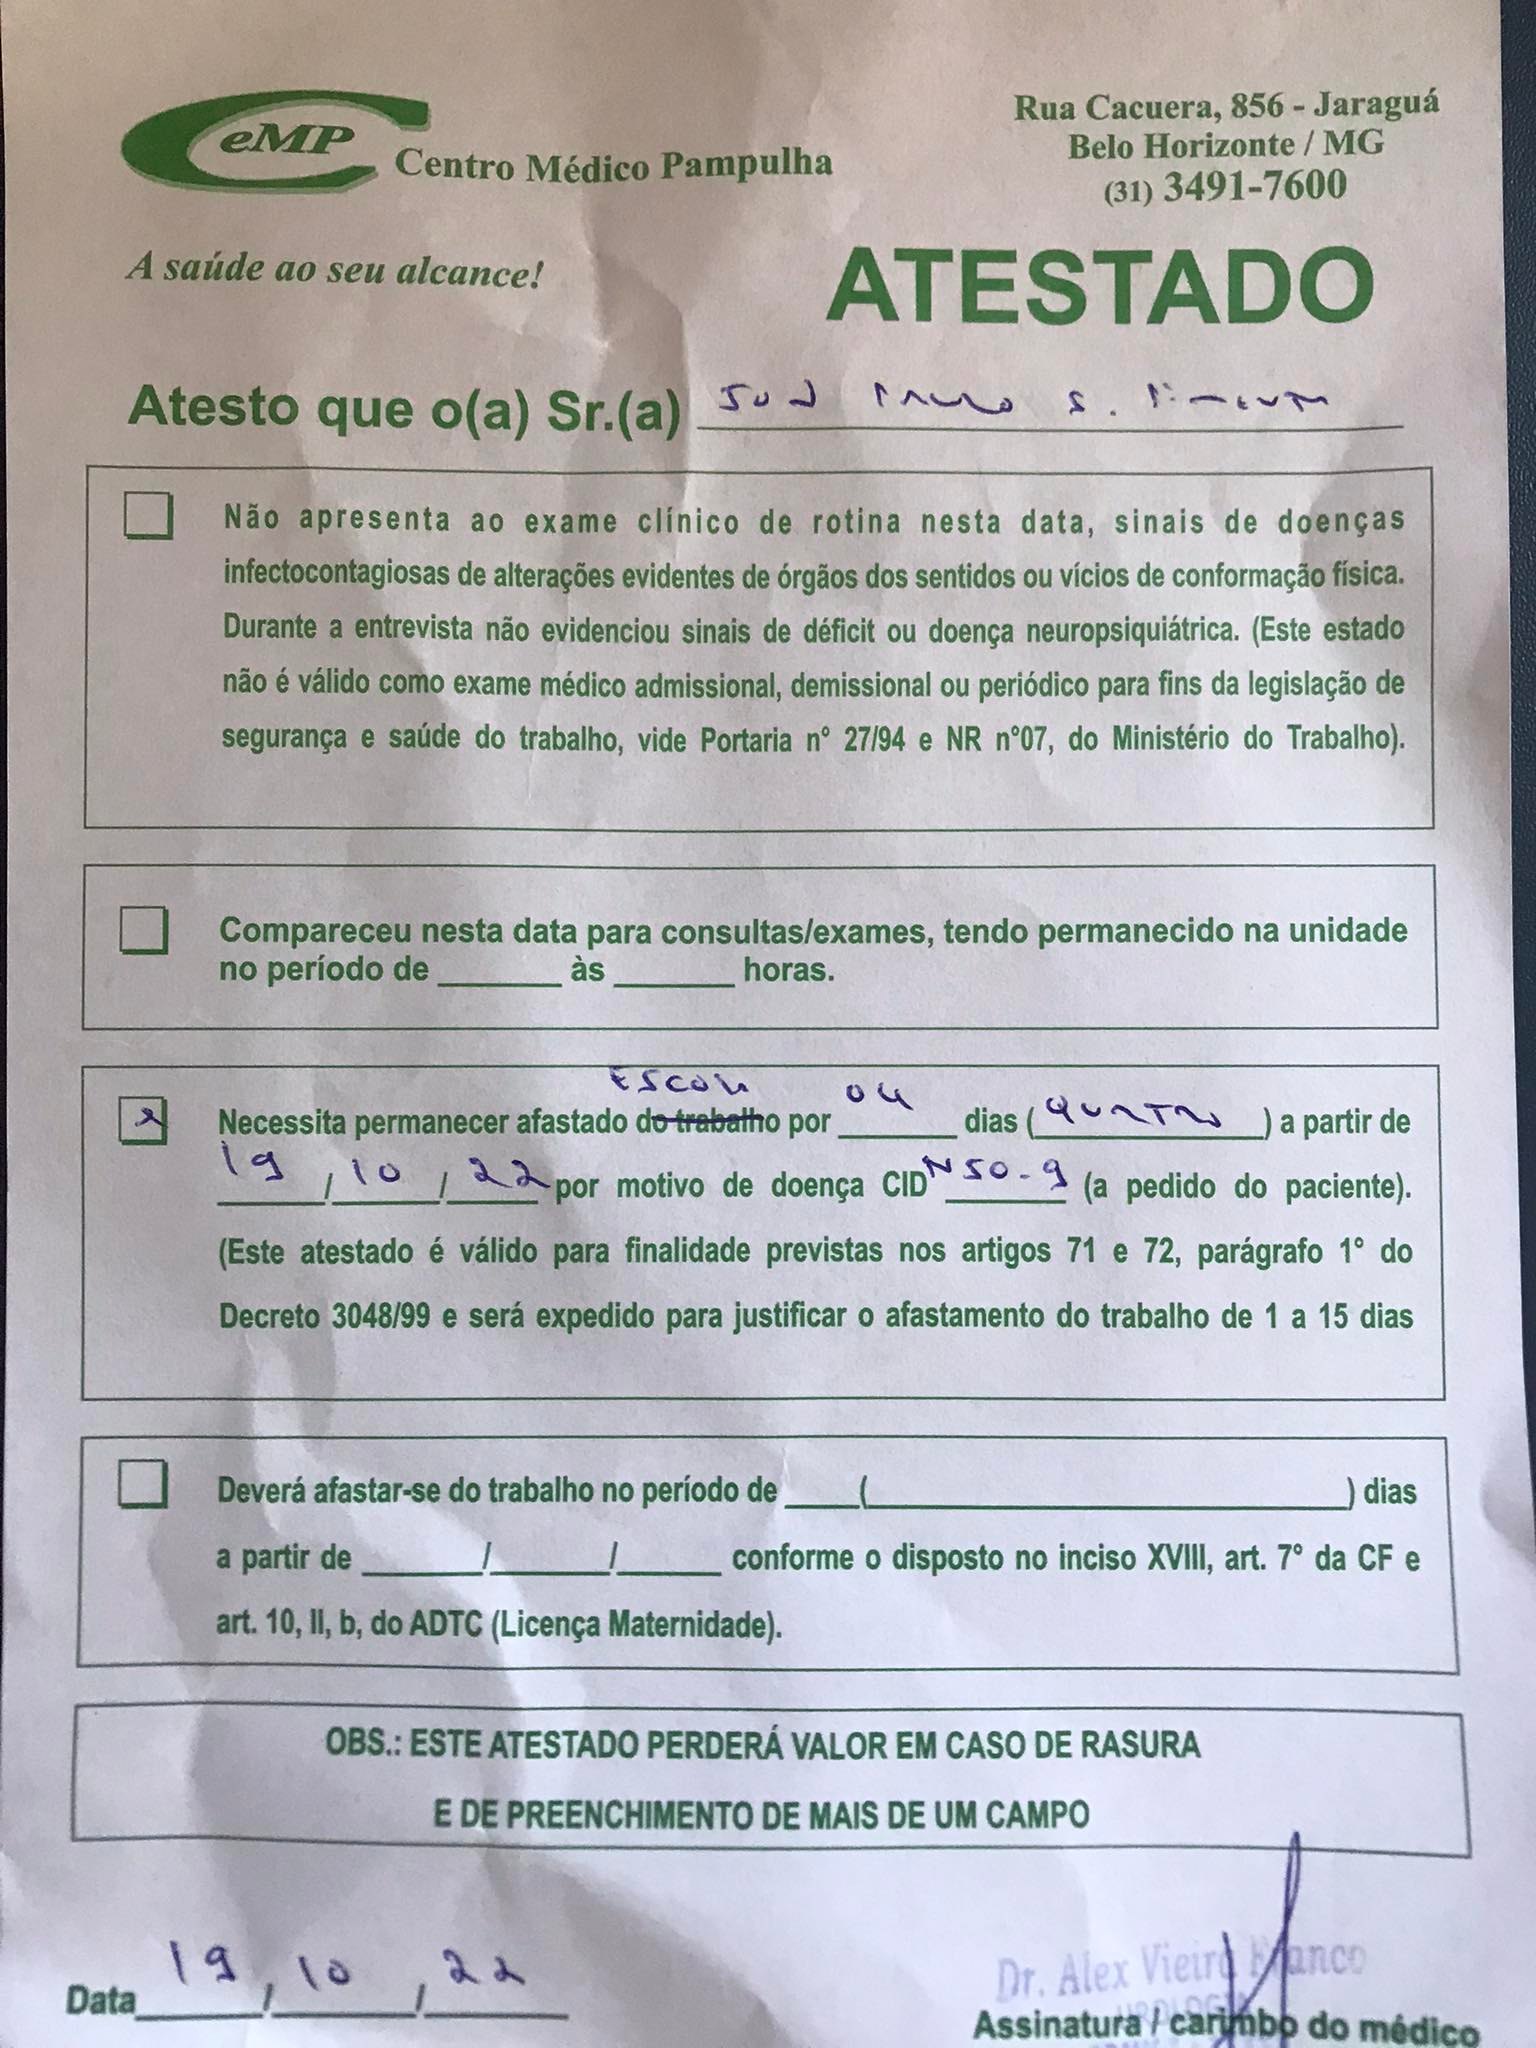 CeMP Centro Médico Pampulha
Rua Cacuera, 856 - Jaraguá
Belo Horizonte / MG
(31) 3491-7600
A saúde ao seu alcance!
ATESTADO
Atesto que o(a) Sr.(a) S.
Não apresenta ao exame clínico de rotina nesta data, sinais de doenças
infectocontagiosas de alterações evidentes de órgãos dos sentidos ou vícios de conformação física.
Durante a entrevista não evidenciou sinais de déficit ou doença neuropsiquiátrica. (Este estado
não é válido como exame médico admissional, demissional ou periódico para fins da legislação de
segurança e saúde do trabalho, vide Portaria n° 27/94 e NR n°07, do Ministério do Trabalho).
Compareceu nesta data para consultas/exames, tendo permanecido na unidade
no período de ______ às ______ horas.
ESCOLA
x Necessita permanecer afastado do trabalho por 04 dias (QUATRO) a partir de
19/10/22 por motivo de doença CID N50-9 (a pedido do paciente).
(Este atestado é válido para finalidade previstas nos artigos 71 e 72, parágrafo 1° do
Decreto 3048/99 e será expedido para justificar o afastamento do trabalho de 1 a 15 dias
Deverá afastar-se do trabalho no período de ____(____) dias
a partir de ______/______/______ conforme o disposto no inciso XVIII, art. 7° da CF e
art. 10, II, b, do ADTC (Licença Maternidade).
OBS.: ESTE ATESTADO PERDERÁ VALOR EM CASO DE RASURA
E DE PREENCHIMENTO DE MAIS DE UM CAMPO
Data 19/10/22
Dr. Alex Vieira Franco
UROLOGIA
Assinatura / carimbo do médico